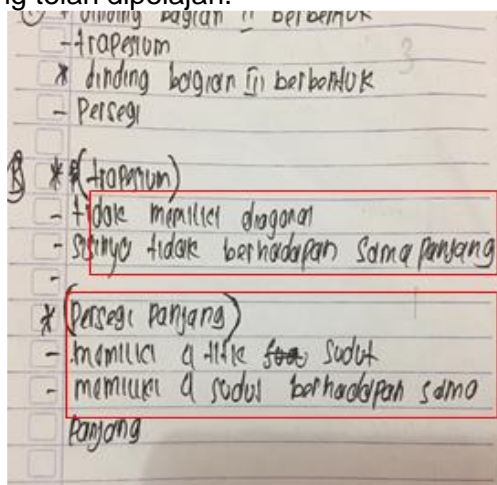 ng telah dipelajari.
dinding bagian II berbentuk
- trapesium
* dinding bagian III berbentuk
- Persegi
B * (trapesium)
- tidak memiliki diagonal
- sisinya tidak berhadapan sama panjang
-
* (Persegi Panjang)
- memiliki 4 titik sudut
- memiliki 4 sudut berhadapan sama
panjang